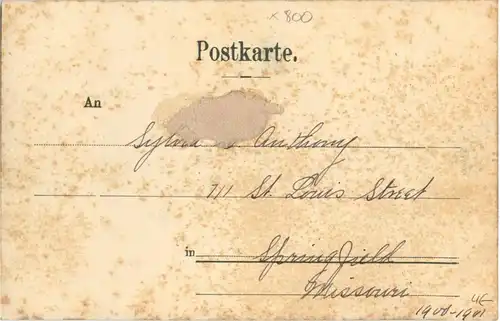 x 800
Postkarte.
An
Sylvia Anthony
711 St. Louis Street
in Springfield
Missouri
1900-1901